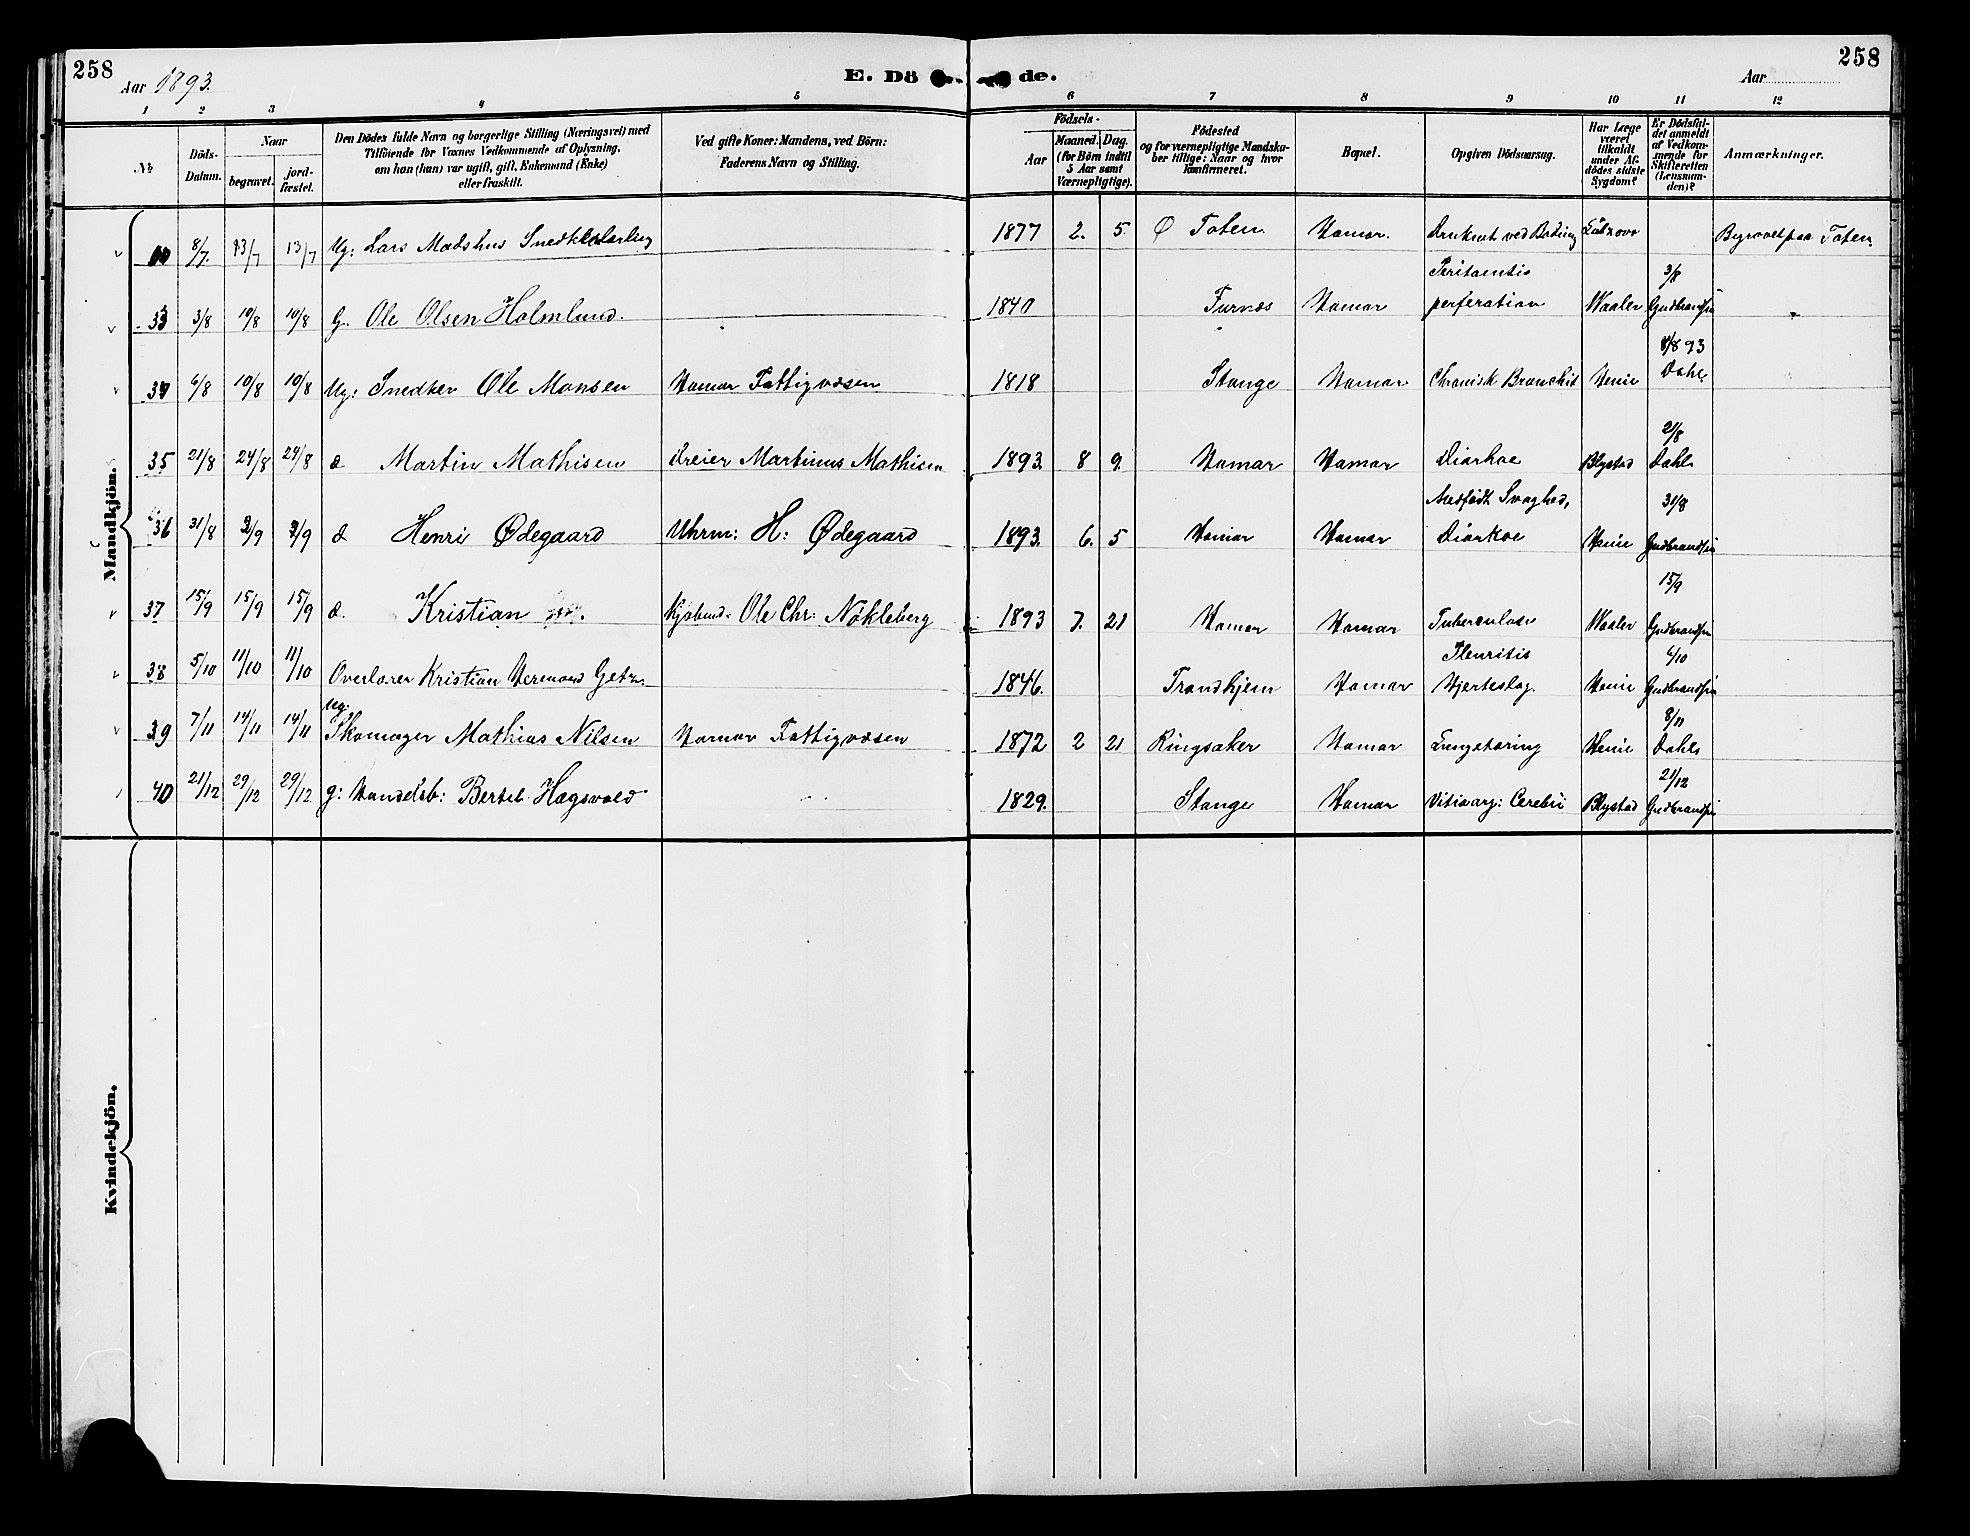 258
Aar 1893.
E. Dö de.
Aar
258
1 2 3 4 5 6 7 8 9 10 11 12
№
Döds-Datum.
Naar
begravet.
jord-fæstet.
Den Dödes fulde Navn og borgerlige Stilling (Næringsvei) med
Tilföiende for Voxnes Vedkommende af Oplysning,
om han (hun) var ugift, gift, Enkemand (Enke)
eller fraskilt.
Ved gifte Koner: Mandens, ved Börn:
Faderens Navn og Stilling.
Födsels-
Aar
Maaned. Dag.
(for Börn indtil
5 Aar samt
Værnepligtige).
Födested
og for værnepligtige Mandska-
ber tillige: Naar og hvor
konfirmeret.
Bopæl.
Opgiven Dödsaarsag.
Har Læge
været
tilkaldt
under Af-
dödes sidste
Sygdom?
Er Dödsfal-
det anmeldt
af Vedkom-
mende for
Skifteretten
(Lensman-
den)?
Anmærkninger.
Mandkjön.
8/7. 13/7 13/7 Ug: Lars Madshus Snedkerlærling 1877 2. 5. Ø Toten Hamar. Druknet ved Bading Begravet paa Toten.
33 3/8 10/8 10/8 G. Ole Olsen Holmlund. 1840 Furnæs Hamar perforation Waaler 3/8 Gudbrandsen
34 6/8 10/8 10/8 Ug: Snedker Ole Monsen Hamar Fattigvæsen 1818 Stange Hamar Chronisk Bronchit Henie 8/8 93 Dahl
35 21/8 24/8 24/8 d Martin Mathisen Dreier Martinus Mathisen 1893. 8 9. Hamar Hamar Diarhoe Blystad 21/8 Dahl
36 31/8 2/9 2/9 d Henri Ødegaard Uhrm: H: Ødegaard 1893. 6. 5 Hamar Hamar Medfødt Svaghed, Diarhoe Henie 31/8 Gudbrandsen
37 15/9 15/9 15/9 d. Kristian Ole Chr: Nökleberg 1893 7. 21 Hamar Hamar Tuberculose Waaler 15/9 Gudbrandsen
38 5/10 11/10 11/10 Overlærer Kristian Hermand Getz. 1846. Trondhjem Hamar Pleuritis Hjerteslag. Henie 6/10 Gudbrandsen
39 7/11 14/11 14/11 Ug. Skomager Mathias Nilsen Hamar Fattigvæsen 1872 2 21 Ringsaker Hamar Lungetæring Henie 8/11 Dahl
40 21/12 29/12 29/12 g: Handelsb: Bertel Hagsvold 1829. Stange Hamar Vitium org: Cerebri Blystad 21/12 Gudbrandsen
Kvindekjön.